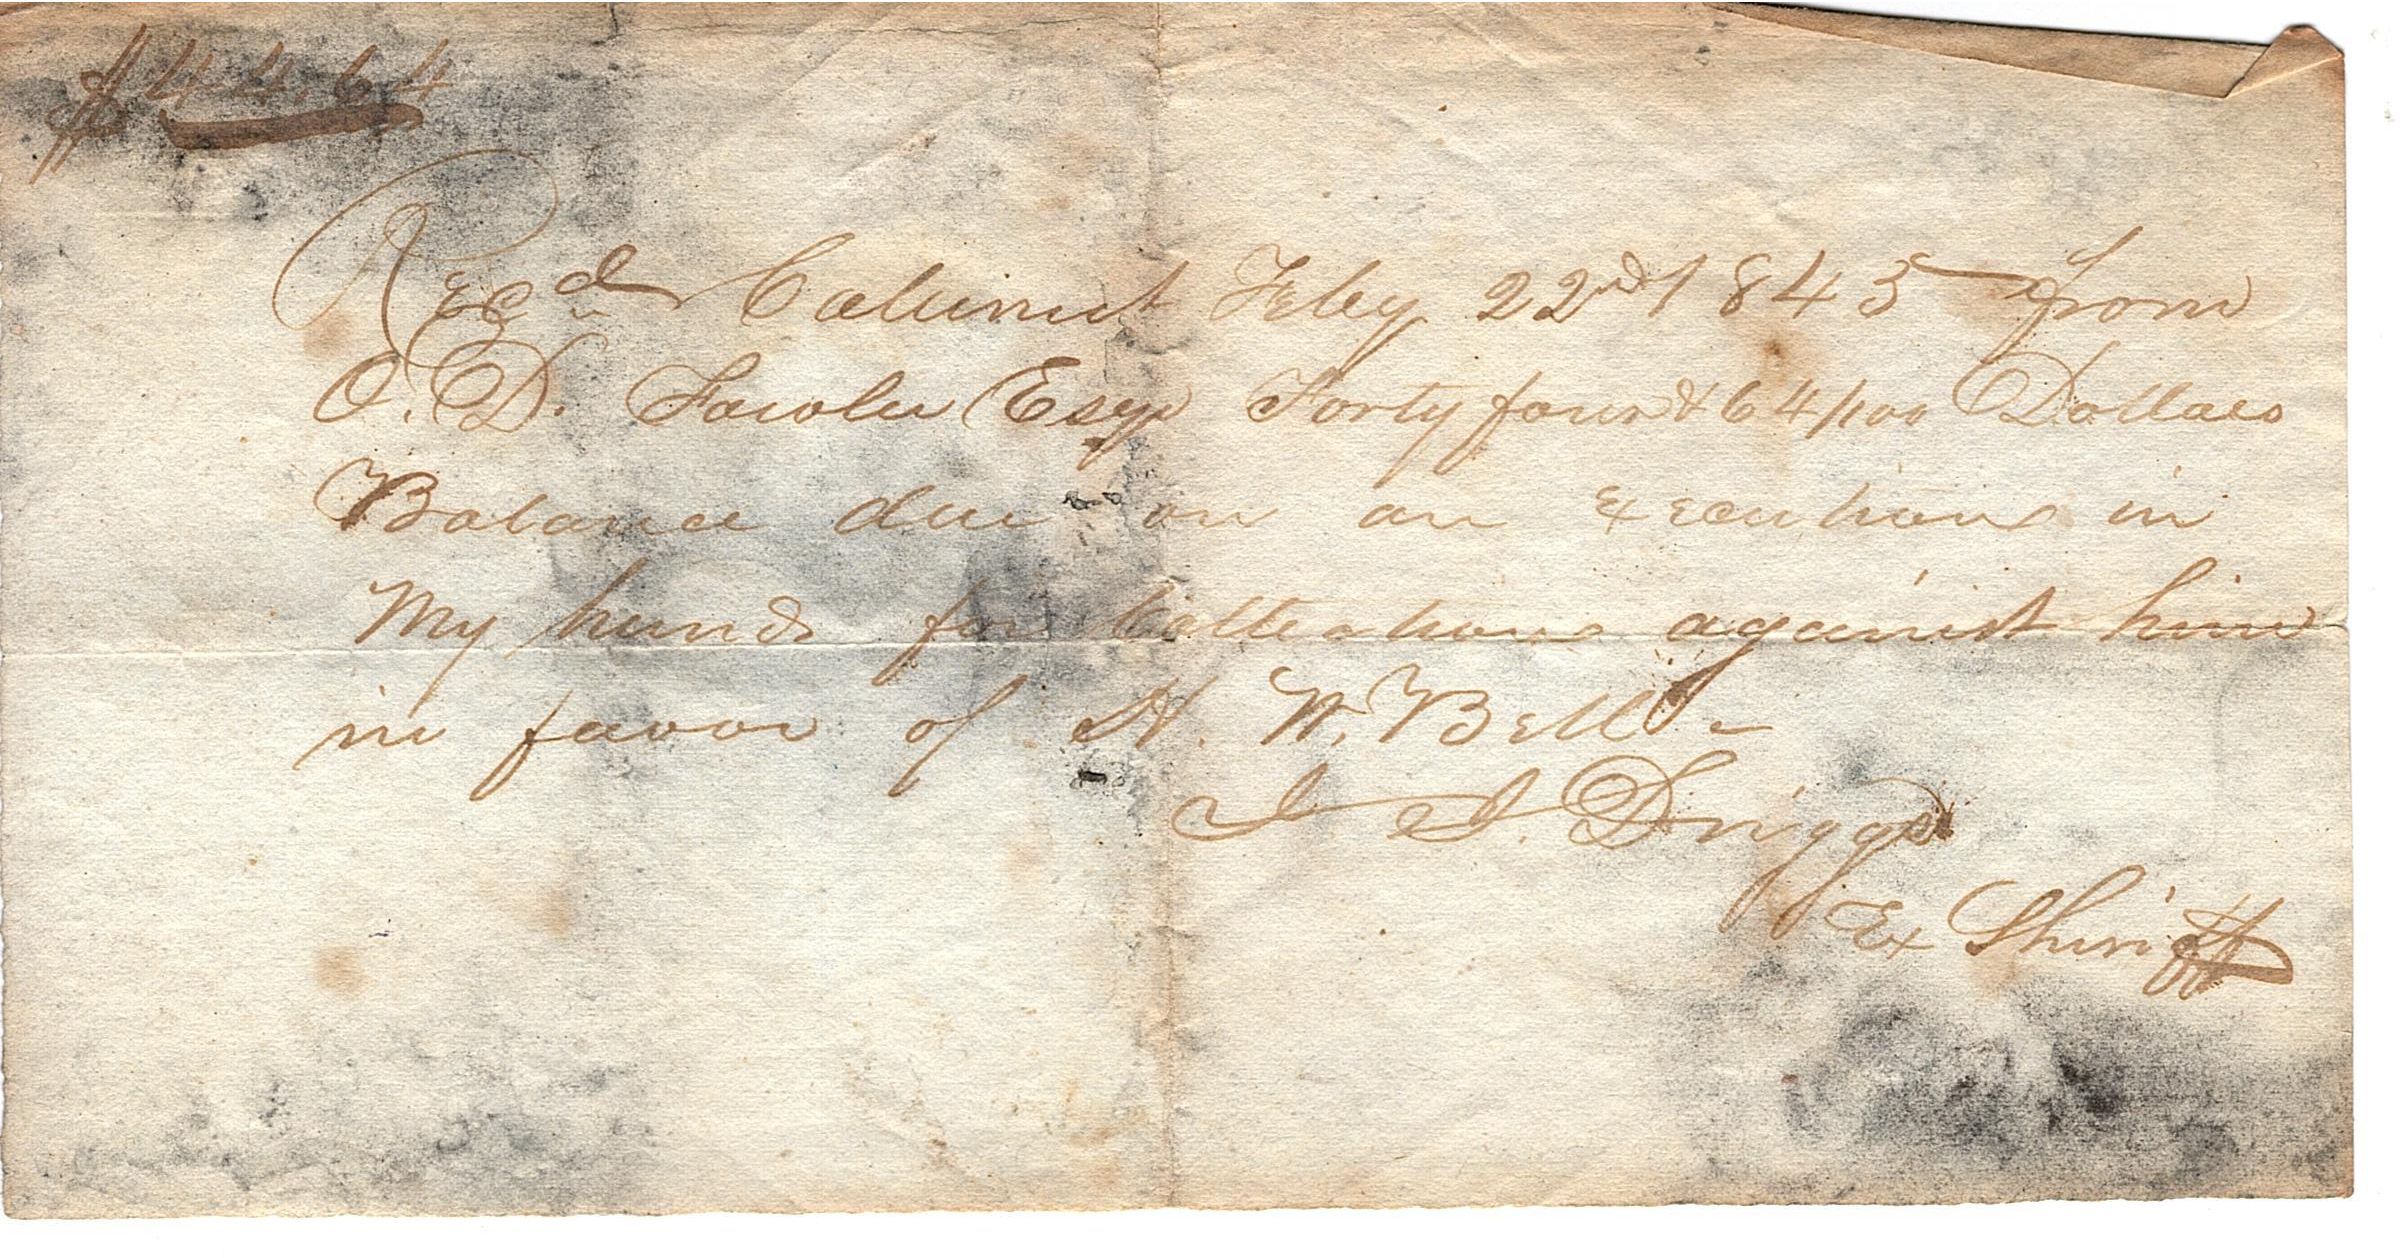 $44.64
Recd Calumet Feby 22nd 1845 from
O. D. Fowler Esqr Forty four & 64/100 Dollars
Balance due on an Execution in
My hands for Collection against him
in favor of N. W. Bell
J. S. Driggs
Ex Sheriff